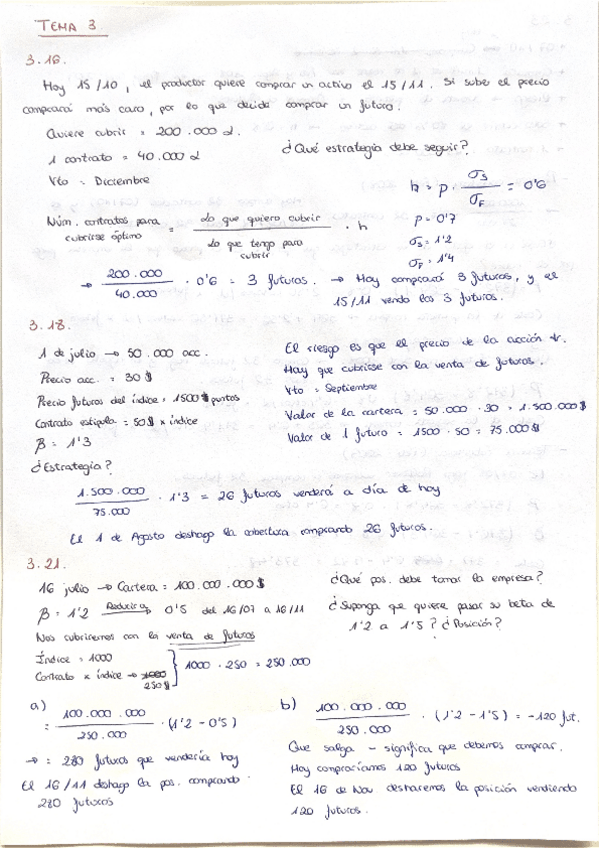 TEMA 3.
3.16.
Hoy 15/10, el productor quiere comprar un activo el 15/11. Si sube el precio
comprará más caro, por lo que decide comprar un futuro.
Quiere cubrir = 200.000 l.
1 contrato = 40.000 l
¿Qué estrategia debe seguir?
Vto = Diciembre
h = p · σS / σF = 0'6
p = 0'7
σS = 1'2
σF = 1'4
Núm. contratos para cubrirse óptimo = Lo que quiero cubrir / Lo que tengo para cubrir · h
→ 200.000 / 40.000 · 0'6 = 3 futuros. → Hoy comprará 3 futuros, y el
15/11 vendo los 3 futuros.
3.18.
1 de julio → 50.000 acc.
Precio acc. = 30 $
Precio futuros del índice = 1500 $ puntos
Contrato estipula = 50$ x índice
β = 1'3
¿Estrategia?
El riesgo es que el precio de la acción ↓.
Hay que cubrirse con la venta de futuros.
Vto = Septiembre
Valor de la cartera = 50.000 · 30 = 1.500.000 $
Valor de 1 futuro = 1500 · 50 = 75.000 $
1.500.000 / 75.000 · 1'3 = 26 futuros venderá a día de hoy
El 1 de Agosto deshago la cobertura comprando 26 futuros.
3.21.
16 julio → Cartera = 100.000.000 $
β = 1'2 Reducir a → 0'5 del 16/07 a 16/11
Nos cubriremos con la venta de futuros
Índice = 1000
Contrato x índice → 1000
250 $
} 1000 · 250 = 250.000
¿Qué pos. debe tomar la empresa?
¿Suponga que quiere pasar su beta de
1'2 a 1'5? ¿Posición?
a)
= 100.000.000 / 250.000 · (1'2 - 0'5)
→ = 280 futuros que vendería hoy
El 16/11 deshago la pos. comprando
280 futuros
b) 100.000.000 / 250.000 · (1'2 - 1'5) = -120 fut.
Que salga - significa que debemos comprar.
Hoy compraríamos 120 futuros
El 16 de Nov desharemos la posición vendiendo
120 futuros.